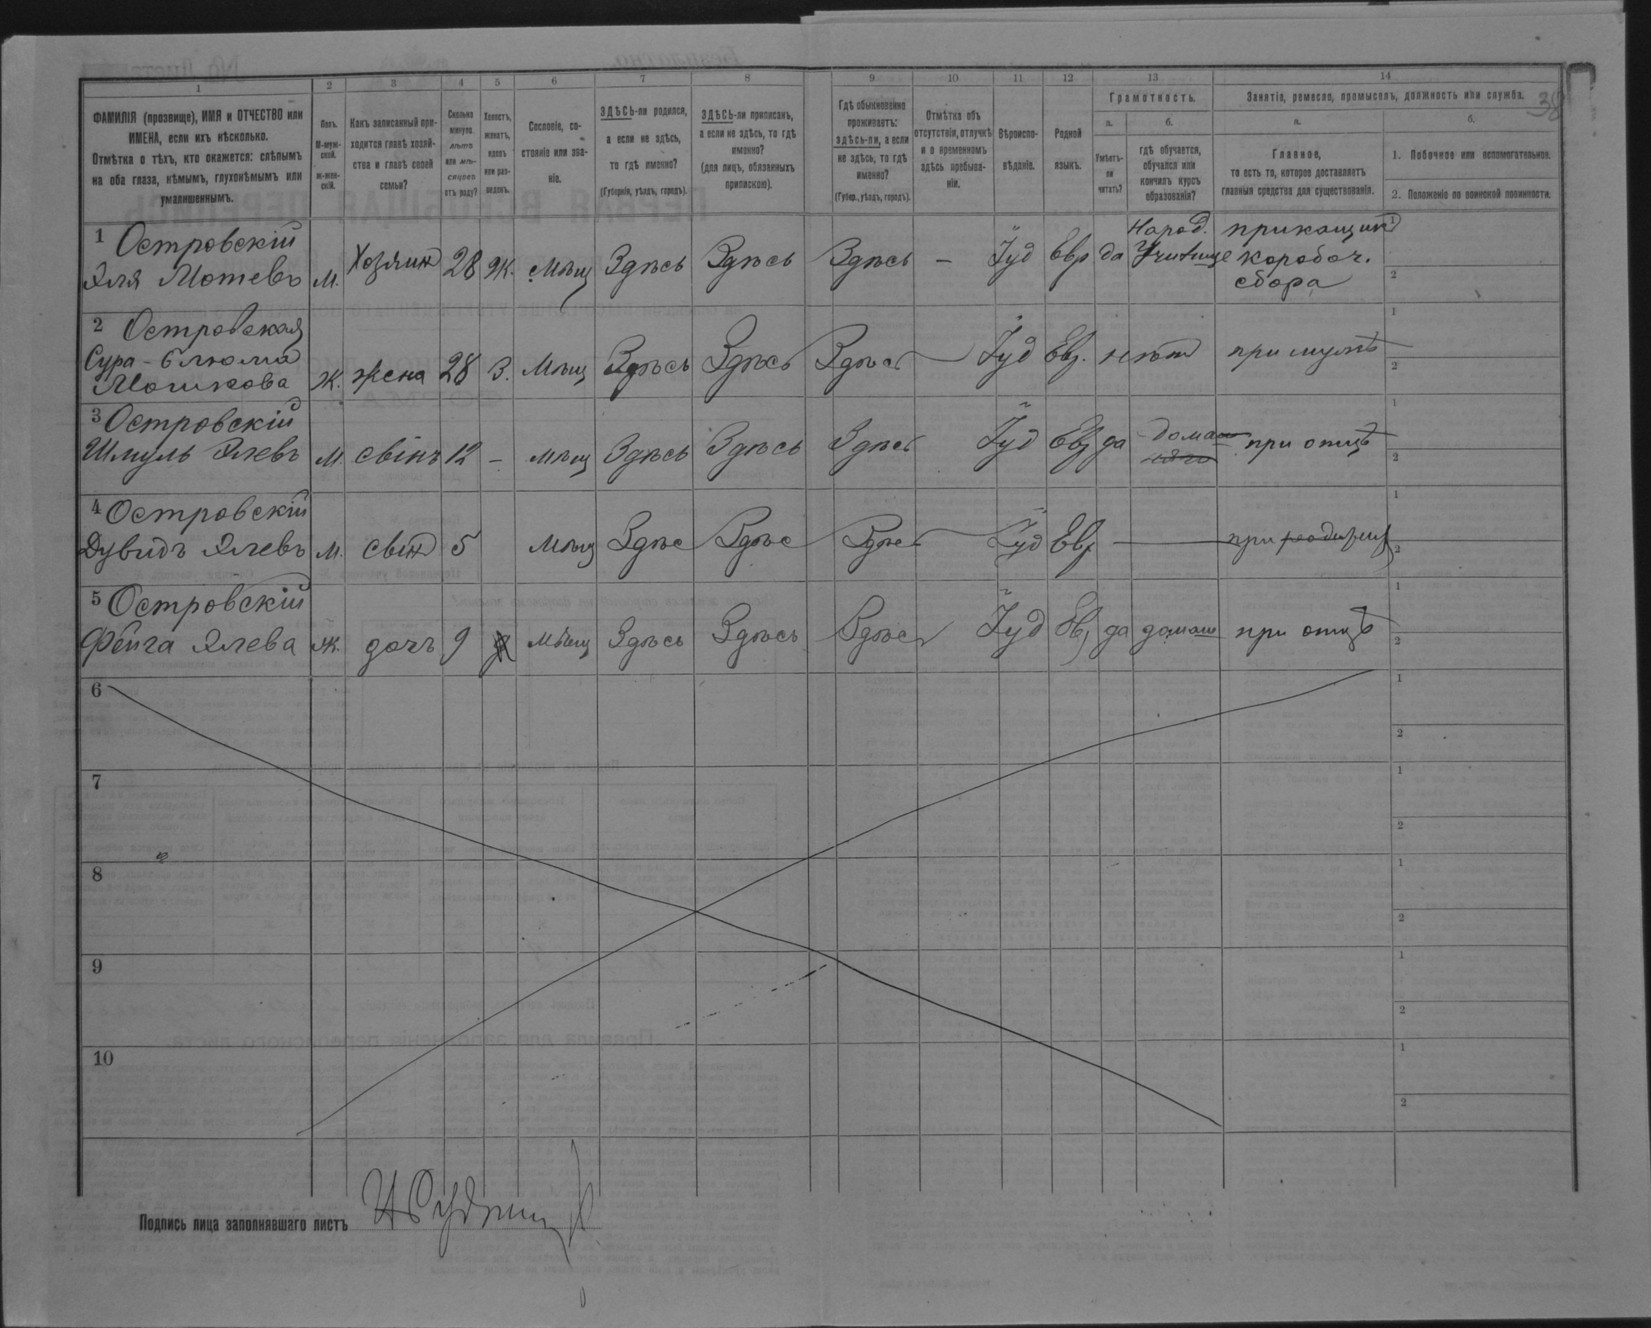 38
1 2 3 4 5 6 7 8 9 10 11 12 13 14
ФАМИЛІЯ (прозвище), ИМЯ и ОТЧЕСТВО или
ИМЕНА, если ихъ нѣсколько.
Отмѣтка о тѣхъ, кто окажется: слѣпымъ
на оба глаза, нѣмымъ, глухонѣмымъ или
умалишеннымъ.
Полъ.
М-муж-
ской.
ж-жен-
скій.
Какъ записанный при-
ходится главѣ хозяй-
ства и главѣ своей
семьи?
Сколько
минуло
лѣтъ
или мѣ-
сяцевъ
отъ роду?
Холостъ,
женатъ,
вдовъ
или раз-
веденъ.
Сословіе, со-
стояніе или зва-
ніе.
ЗДѢСЬ-ли родился,
а если не здѣсь,
то гдѣ именно?
(Губернія, уѣздъ, городъ).
ЗДѢСЬ-ли приписанъ,
а если не здѣсь, то гдѣ
именно?
(для лицъ, обязанныхъ
припискою).
Гдѣ обыкновенно
проживаетъ:
здѣсь-ли, а если
не здѣсь, то гдѣ
именно?
(Губер., уѣздъ, городъ).
Отмѣтка объ
отсутствіи, отлучкѣ
и о временномъ
здѣсь пребыва-
ніи.
Вѣроиспо-
вѣданіе.
Родной
языкъ.
Грамотность.
а.
Умѣетъ-
ли
читать?
б.
гдѣ обучается,
обучался или
кончилъ курсъ
образованія?
Занятіе, ремесло, промыселъ, должность или служба.
а.
Главное,
то есть то, которое доставляетъ
главныя средства для существованія.
б.
1. Побочное или вспомогательное.
2. Положеніе по воинской повинности.
1 Островскій
Эля Мотевъ м. Хозяин 28 Ж. мѣщ Здѣсь Здѣсь Здѣсь – Іуд Евр да Народ. Училище прикащик
коробоч.
сбора
1
2
2 Островская
Сура-Блюма
Мошкова ж. жена 28 З. Мѣщ Здѣсь Здѣсь Здѣсь Іуд Евр. нѣт при мужѣ
1
2
3 Островскій
Шмуль Элевъ м свінъ 12 – мѣщ Здѣсь Здѣсь Здѣсь Іуд Евр да дома при отцѣ
1
2
4 Островскій
Дувидъ Элевъ м. свін 5 мѣщ Здѣс Здѣс Здѣс Іуд Евр при родит
1
2
5 Островскій
Фейга Элева ж. дочь 9 мѣщ Здѣсь Здѣсь Здѣсь Іуд Евр да домаш при отцѣ
1
2
6
1
2
7
1
2
8
1
2
9
1
2
10
1
2
Подпись лица заполнявшаго листъ